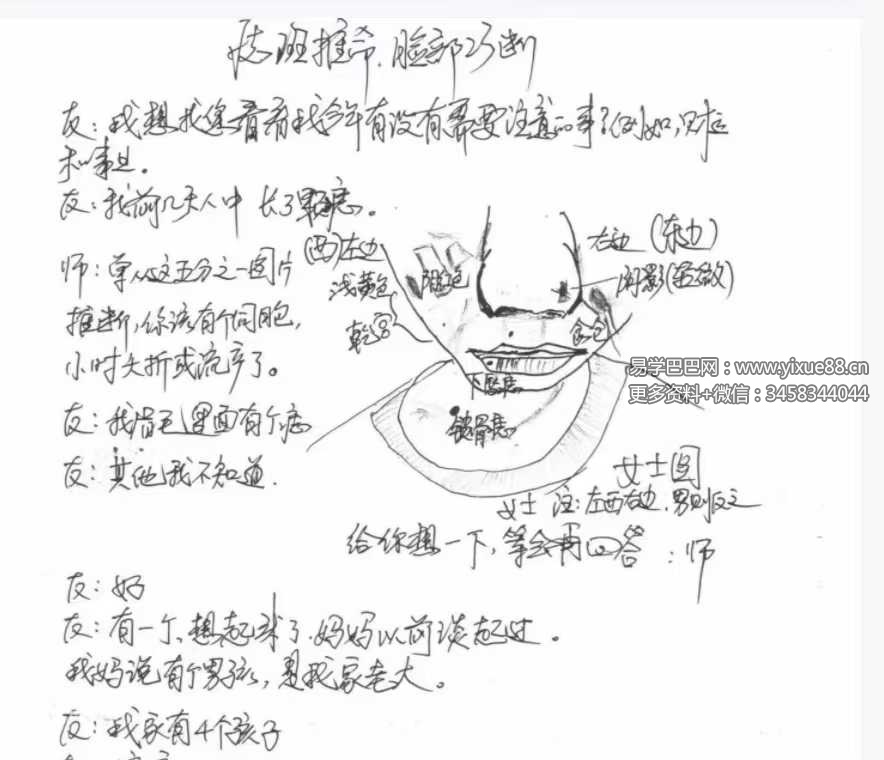 痣斑推命.脸部巧断
友：我想找您看看我今年有没有需要注意的事？例如，财运
和事业。
友：我前几天人中 长了黑痣。
师：单从这五分之一图片
推断，你该有个同胞，
小时夭折或流产了。
友：我眉毛里面有个痣
友：其他我不知道.
(西)左边
浅黄色
乾宫
右边 (东边)
阴影(轻微)
食仓
锁骨痣
易学巴巴网：www.yixue88.cn
更多资料+微信：3458344044
女士图
女士 注：左西右边.男则反之
给你想一下，等会再回答：师
友：好
友：有一个、想起来了.妈妈以前谈起过。
我妈说有个男孩，是我家老大。
友：我家有4个孩子